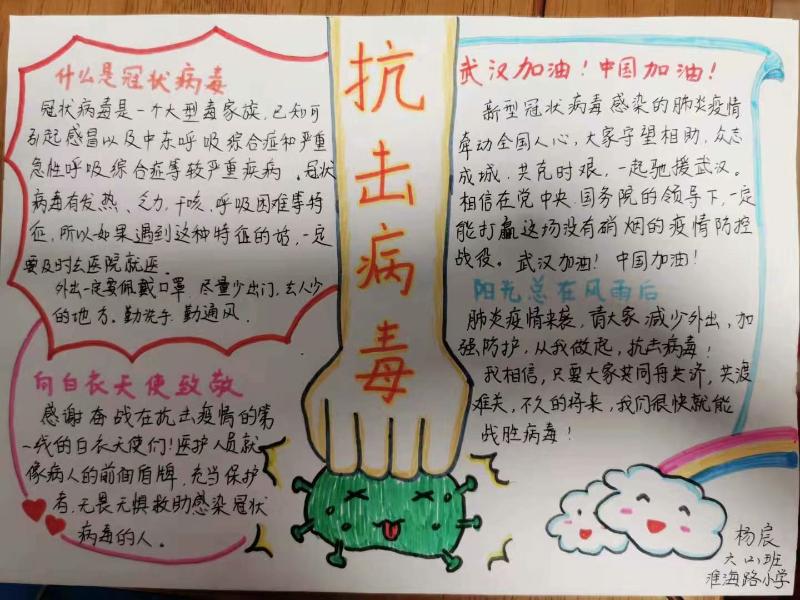 什么是冠状病毒
冠状病毒是一个大型毒家族,已知可
引起感冒以及中东呼吸综合症和严重
急性呼吸综合症等较严重疾病.冠状
病毒有发热、乏力、干咳、呼吸困难等特
征,所以如果遇到这种特征的话,一定
要及时去医院就医.
外出一定要佩戴口罩.尽量少出门,去人少
的地方.勤洗手.勤通风.
向白衣天使致敬
感谢奋战在抗击疫情的第
一线的白衣天使们!医护人员就
像病人的前個盾牌,充当保护
者,无畏无惧救助感染冠状
病毒的人.
抗击病毒
武汉加油!中国加油!
新型冠状病毒感染的肺炎疫情
牵动全国人心,大家守望相助,众志
成城,共克时艰,一起驰援武汉。
相信在党中央.国务院的领导下,一定
能打赢这场没有硝烟的疫情防控
战役。武汉加油!中国加油!
阳光总在风雨后
肺炎疫情来袭,请大家减少外出,加
强防护,从我做起,抗击病毒!
我相信,只要大家共同舟共济,共渡
难关,不久的将来,我们很快就能
战胜病毒!
杨宸
淮海路小学